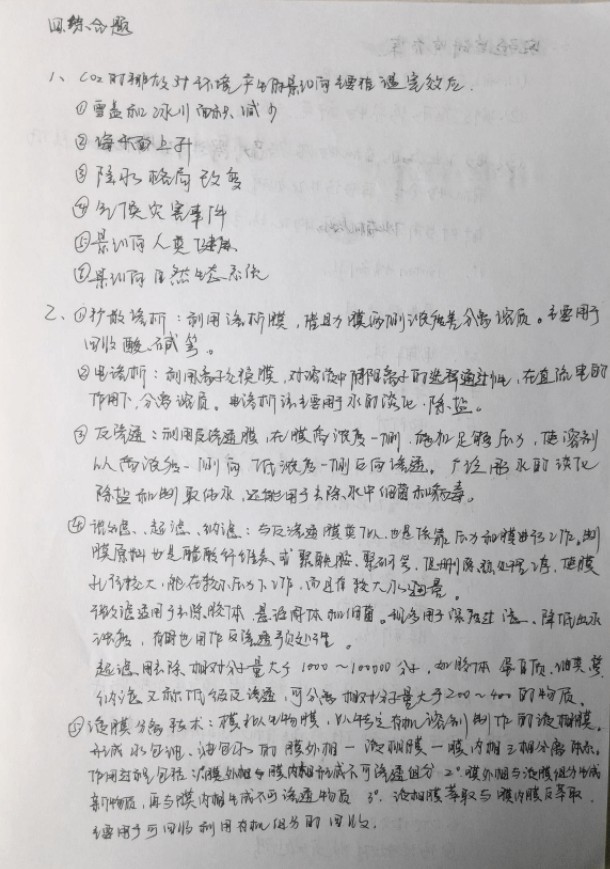 四、综合题
1、CO2的排放对环境产生的影响主要指温室效应.
①雪盖和冰川面积减少
②海平面上升
③降水格局改变
④气候灾害事件
⑤影响人类健康
⑥影响自然生态系统
2、①扩散渗析：利用渗析膜，借助膜两侧浓度差分离溶质。主要用于
回收酸、碱等。
②电渗析：利用离子交换膜，对溶液中阴阳离子的选择通过性，在直流电的
作用下，分离溶质。电渗析法主要用于水的淡化、除盐。
③反渗透：利用反渗透膜，在膜高浓度一侧，施加足够压力，使溶剂
从高浓度一侧向低浓度一侧反向渗透。广泛用水的淡化
除盐和制取纯水，还能用于去除水中细菌和病毒。
④微滤、超滤、纳滤：与反渗透膜类似，也是依靠压力和膜进行工作。制
膜原料也是醋酸纤维素或聚酰胺、聚砜等，但删除热处理工序，使膜
孔径较大，能在较小压力下工作，而且有较大水通量。
微滤适用于去除胶体、悬浮固体和细菌。现多用于深层过滤、降低出水
浊度，有时也用作反渗透预处理。
超滤用去除相对分子量大于1000～100000分子，如胶体 蛋白质、细菌等
纳滤又称低级反渗透，可分离相对分子量大于200～400的物质。
⑤液膜分离技术：模拟生物膜，以特定有机溶剂制作的液相膜。
形成水包油、油包水的膜外相－液相膜－膜内相三相分离体系。
作用过程包括：1°膜外相与膜内相形成不可渗透组分 2°膜外相与液膜组分生成
新物质，再与膜内相生成不可渗透物质 3°液相膜萃取与膜内膜反萃取.
主要用于可回收利用有机组分的回收.